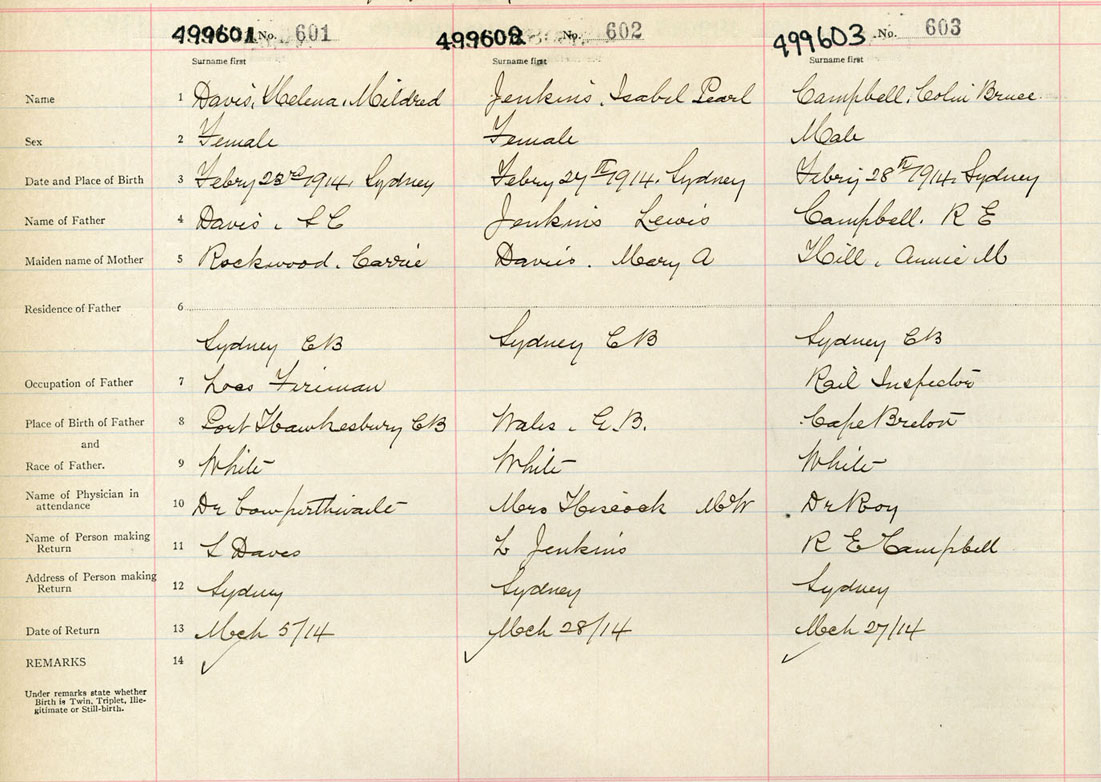 499601 No. 601 499602 No. 602 499603 No. 603
Surname first Surname first Surname first
Name 1 Davis, Helena, Mildred Jenkins, Isabel Pearl Campbell, Colin Bruce
Sex 2 Female Female Male
Date and Place of Birth 3 Febry 23rd 1914, Sydney Febry 27th 1914, Sydney Febry 28th 1914, Sydney
Name of Father 4 Davis, S C Jenkins Lewis Campbell. R E
Maiden name of Mother 5 Rockwood, Carrie Davies. Mary A Hill, Annie M
Residence of Father 6
Sydney CB Sydney CB Sydney CB
Occupation of Father 7 Loco Fireman Rail Inspector
Place of Birth of Father 8 Port Hawkesbury CB Wales, G.B. Cape Breton
and
Race of Father. 9 White White White
Name of Physician in
attendance 10 Dr Cowperthwaite Mrs Hiscock MW Dr Roy
Name of Person making
Return 11 S Davis L Jenkins R E Campbell
Address of Person making
Return 12 Sydney Sydney Sydney
Date of Return 13 Mch 5/14 Mch 28/14 Mch 27/14
REMARKS 14
Under remarks state whether
Birth is Twin, Triplet, Ille-
gitimate or Still-birth.